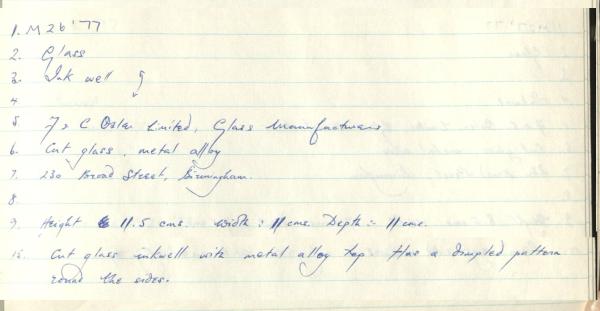 1. M26'77
2. Glass
3. Ink well
4
5. F & C Osler Limited, Glass Manufacturers
6. Cut glass, metal alloy
7. 230 Broad Street, Birmingham.
8
9. Height 11.5 cms. width: 11 cms. Depth: 11 cms.
10. Cut glass inkwell with metal alloy top Has a dimpled pattern
round the sides.